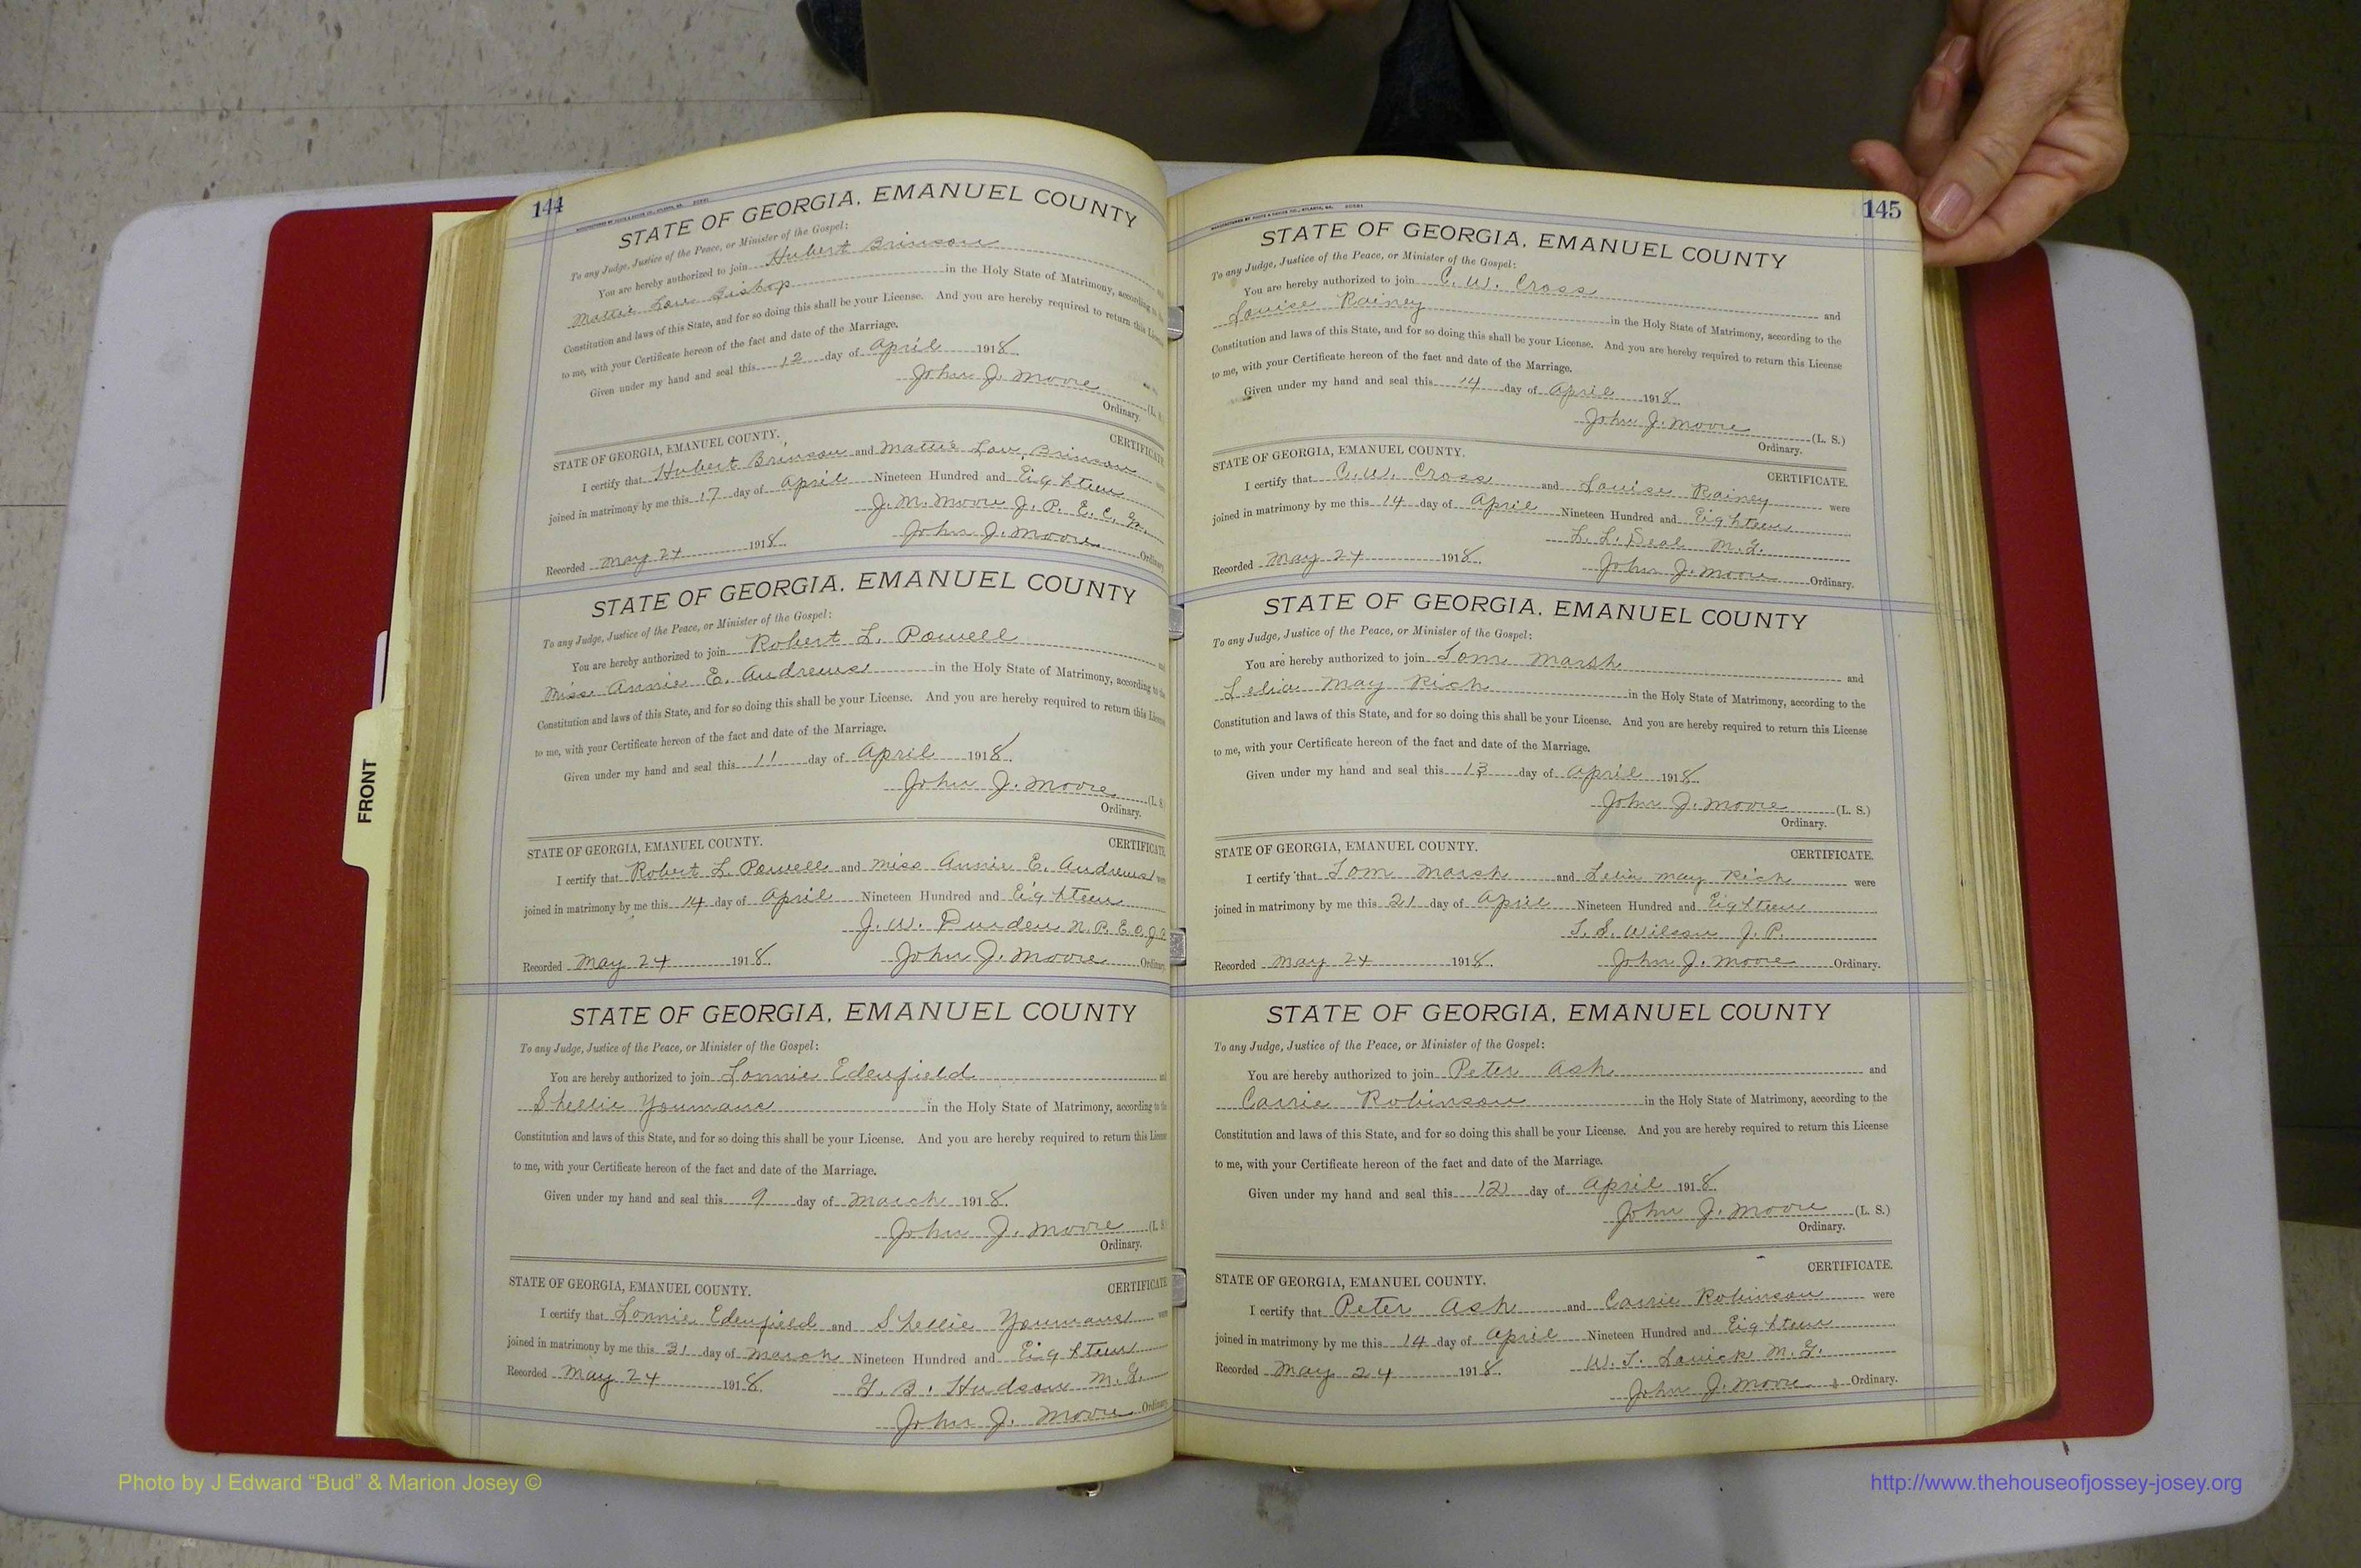 144
STATE OF GEORGIA, EMANUEL COUNTY
To any Judge, Justice of the Peace, or Minister of the Gospel:
You are hereby authorized to join Hubert Brinson
Mattie Low Bishop in the Holy State of Matrimony, according to
Constitution and laws of this State, and for so doing this shall be your License. And you are hereby required to return this License
to me, with your Certificate hereon of the fact and date of the Marriage.
Given under my hand and seal this 12 day of April 1918.
John J. Moore (L. S.
Ordinary.
STATE OF GEORGIA, EMANUEL COUNTY. CERTIFICATE
I certify that Hubert Brinson and Mattie Low Brinson were
joined in matrimony by me this 17 day of April Nineteen Hundred and Eighteen
J. M. Moore J. P. E. C. Ga.
Recorded May 24 1918. John J. Moore Ordinary.
STATE OF GEORGIA, EMANUEL COUNTY
To any Judge, Justice of the Peace, or Minister of the Gospel:
You are hereby authorized to join Robert L. Powell and
Miss Annie E. Andrews in the Holy State of Matrimony, according to the
Constitution and laws of this State, and for so doing this shall be your License. And you are hereby required to return this License
to me, with your Certificate hereon of the fact and date of the Marriage.
Given under my hand and seal this 11 day of April 1918.
John J. Moore (L. S
Ordinary.
STATE OF GEORGIA, EMANUEL COUNTY. CERTIFICATE
I certify that Robert L. Powell and Miss Annie E. Andrews were
joined in matrimony by me this 14 day of April Nineteen Hundred and Eighteen
J. W. Durden N. P. E.
Recorded May 24 1918. John J. Moore Ordinary
STATE OF GEORGIA, EMANUEL COUNTY
To any Judge, Justice of the Peace, or Minister of the Gospel:
You are hereby authorized to join Lonnie Edenfield and
Shellie Youmans in the Holy State of Matrimony, according to the
Constitution and laws of this State, and for so doing this shall be your License. And you are hereby required to return this License
to me, with your Certificate hereon of the fact and date of the Marriage.
Given under my hand and seal this 9 day of March 1918.
John J. Moore (L. S
Ordinary.
STATE OF GEORGIA, EMANUEL COUNTY. CERTIFICATE
I certify that Lonnie Edenfield and Shellie Youmans were
joined in matrimony by me this 31 day of March Nineteen Hundred and Eighteen
Recorded May 24 1918. G. B. Hudson M. G.
John J. Moore Ordinary
145
STATE OF GEORGIA, EMANUEL COUNTY
To any Judge, Justice of the Peace, or Minister of the Gospel:
You are hereby authorized to join C. W. Cross and
Louise Rainey in the Holy State of Matrimony, according to the
Constitution and laws of this State, and for so doing this shall be your License. And you are hereby required to return this License
to me, with your Certificate hereon of the fact and date of the Marriage.
Given under my hand and seal this 14 day of April 1918.
John J. Moore (L. S.)
Ordinary.
STATE OF GEORGIA, EMANUEL COUNTY. CERTIFICATE.
I certify that C. W. Cross and Louise Rainey were
joined in matrimony by me this 14 day of April Nineteen Hundred and Eighteen
L. L. Deal M. G.
Recorded May 24 1918. John J. Moore Ordinary.
STATE OF GEORGIA, EMANUEL COUNTY
To any Judge, Justice of the Peace, or Minister of the Gospel:
You are hereby authorized to join Tom Marsh and
Lelia May Rich in the Holy State of Matrimony, according to the
Constitution and laws of this State, and for so doing this shall be your License. And you are hereby required to return this License
to me, with your Certificate hereon of the fact and date of the Marriage.
Given under my hand and seal this 13 day of April 1918.
John J. Moore (L. S.)
Ordinary.
STATE OF GEORGIA, EMANUEL COUNTY. CERTIFICATE.
I certify that Tom Marsh and Lelia May Rich were
joined in matrimony by me this 21 day of April Nineteen Hundred and Eighteen
T. S. Wilson J. P.
Recorded May 24 1918. John J. Moore Ordinary.
STATE OF GEORGIA, EMANUEL COUNTY
To any Judge, Justice of the Peace, or Minister of the Gospel:
You are hereby authorized to join Peter Ash and
Carrie Robinson in the Holy State of Matrimony, according to the
Constitution and laws of this State, and for so doing this shall be your License. And you are hereby required to return this License
to me, with your Certificate hereon of the fact and date of the Marriage.
Given under my hand and seal this 12 day of April 1918.
John J. Moore (L. S.)
Ordinary.
STATE OF GEORGIA, EMANUEL COUNTY. CERTIFICATE.
I certify that Peter Ash and Carrie Robinson were
joined in matrimony by me this 14 day of April Nineteen Hundred and Eighteen
Recorded May 24 1918. W. T. Lavick M. G.
John J. Moore Ordinary.
FRONT
Photo by J Edward “Bud” & Marion Josey ©
http://www.thehouseofjossey-josey.org